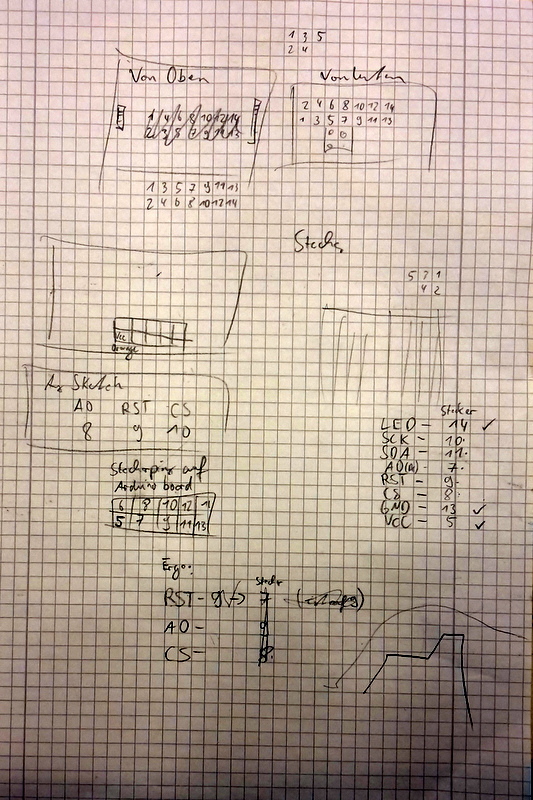 1 3 5
2 4
Von Oben
Von Unten
2 4 6 8 10 12 14
1 3 5 7 9 11 13
1 3 5 7 9 11 13
2 4 6 8 10 12 14
Stecker
5 3 1
4 2
Vcc
Orange
Sketch
A0 RST CS
8 9 10
Steckerpins auf
Arduino board
6 8 10 12
5 7 9 11 13
Stecker
LED - 14 ✓
SCK - 10
SDA - 11
A0 - 7
RST - 9
CS - 8
GND - 13 ✓
VCC - 5 ✓
Ergo:
Stecker
RST - 9 → 7
A0 -
CS - 8